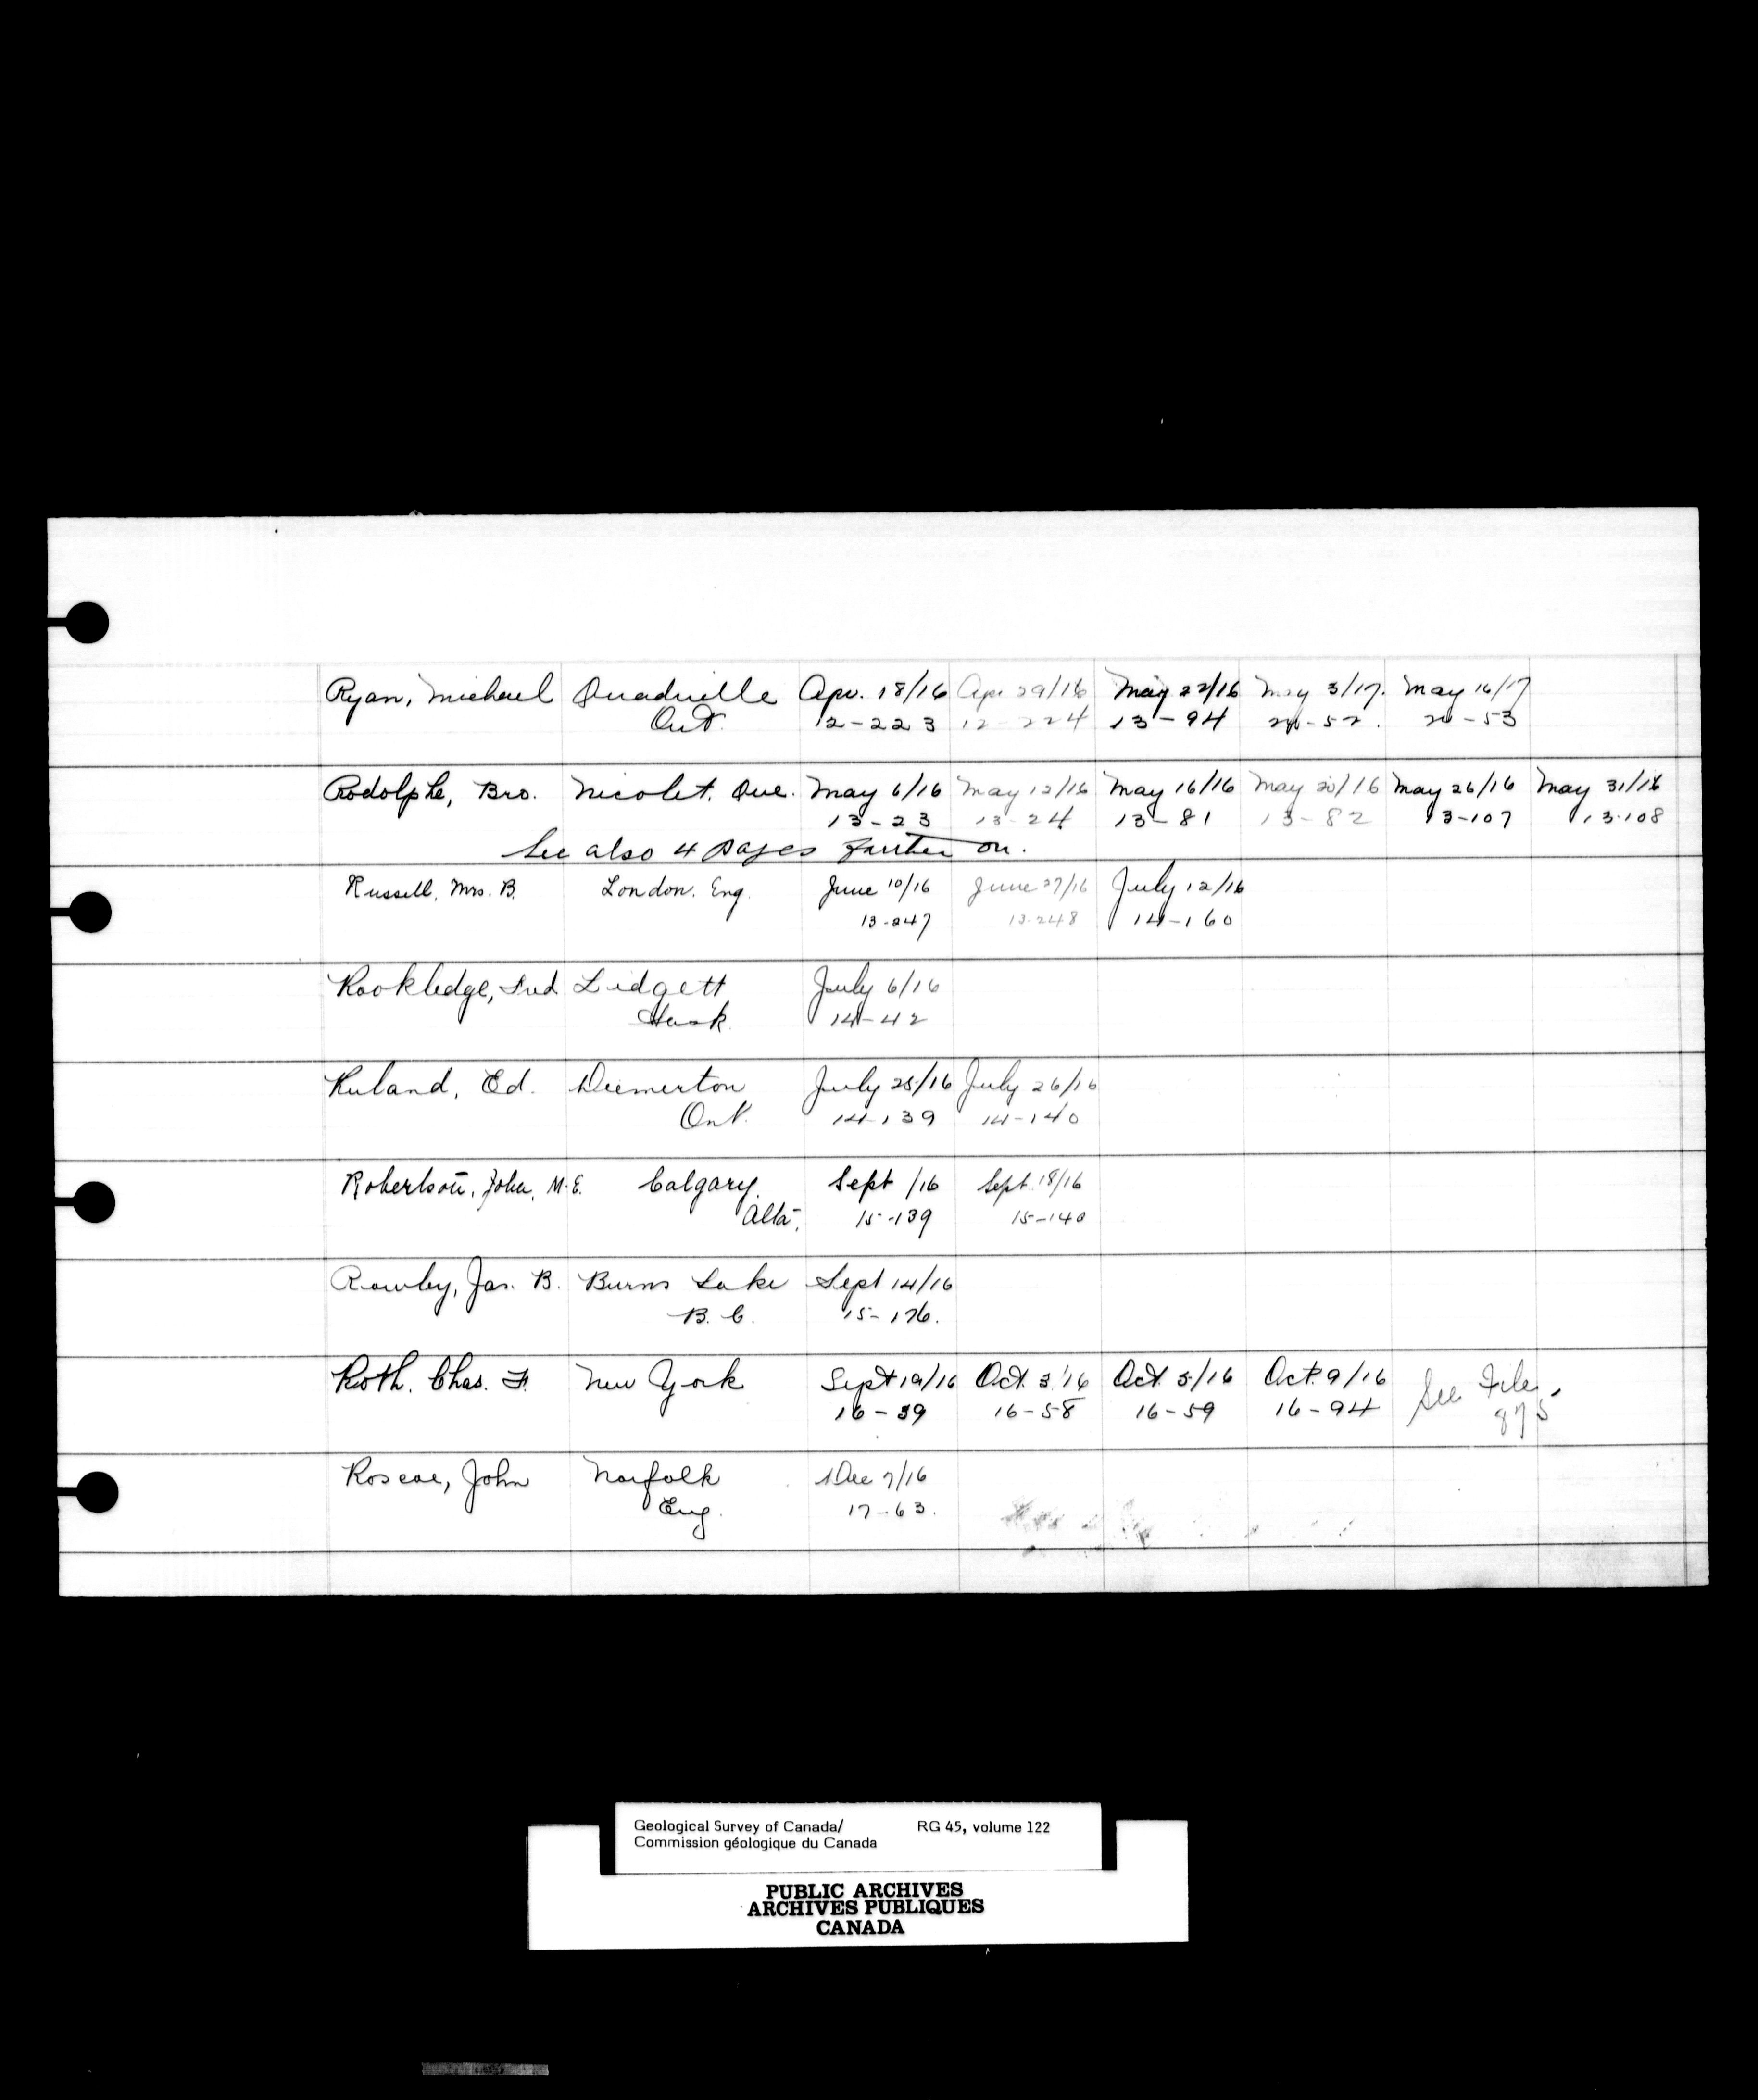 Ryan, Michael Quadville Apr. 18/16 Apr 29/16 May 22/16 May 3/17. May 16/17
Ont. 12-223 12-224 13-94 20-52. 20-53
Rodolphe, Bro. Nicolet, Que. May 6/16 May 12/16 May 16/16 May 20/16 May 26/16 May 31/16
13-23 13-24 13-81 13-82 13-107 13-108
See also 4 pages further on.
Russell, Mrs. B. London. Eng. June 10/16 June 27/16 July 12/16
13-247 13-248 14-160
Rookledge, Fred Lidgett July 6/16
Sask. 14-42
Ruland, Ed. Deemerton July 25/16 July 26/16
Ont. 14-139 14-140
Robertson, John, M.E. Calgary. Sept /16 Sept 18/16
Alta. 15-139 15-140
Rowley, Jas. B. Burns Lake Sept 14/16
B.C. 15-176.
Roth. Chas. F. New York Sept 19/16 Oct. 3/16 Oct. 5/16 Oct. 9/16 See File
16-39 16-58 16-59 16-94 875
Roscoe, John Norfolk Dec 7/16
Eng. 17-63.
Geological Survey of Canada/ RG 45, volume 122
Commission géologique du Canada
PUBLIC ARCHIVES
ARCHIVES PUBLIQUES
CANADA